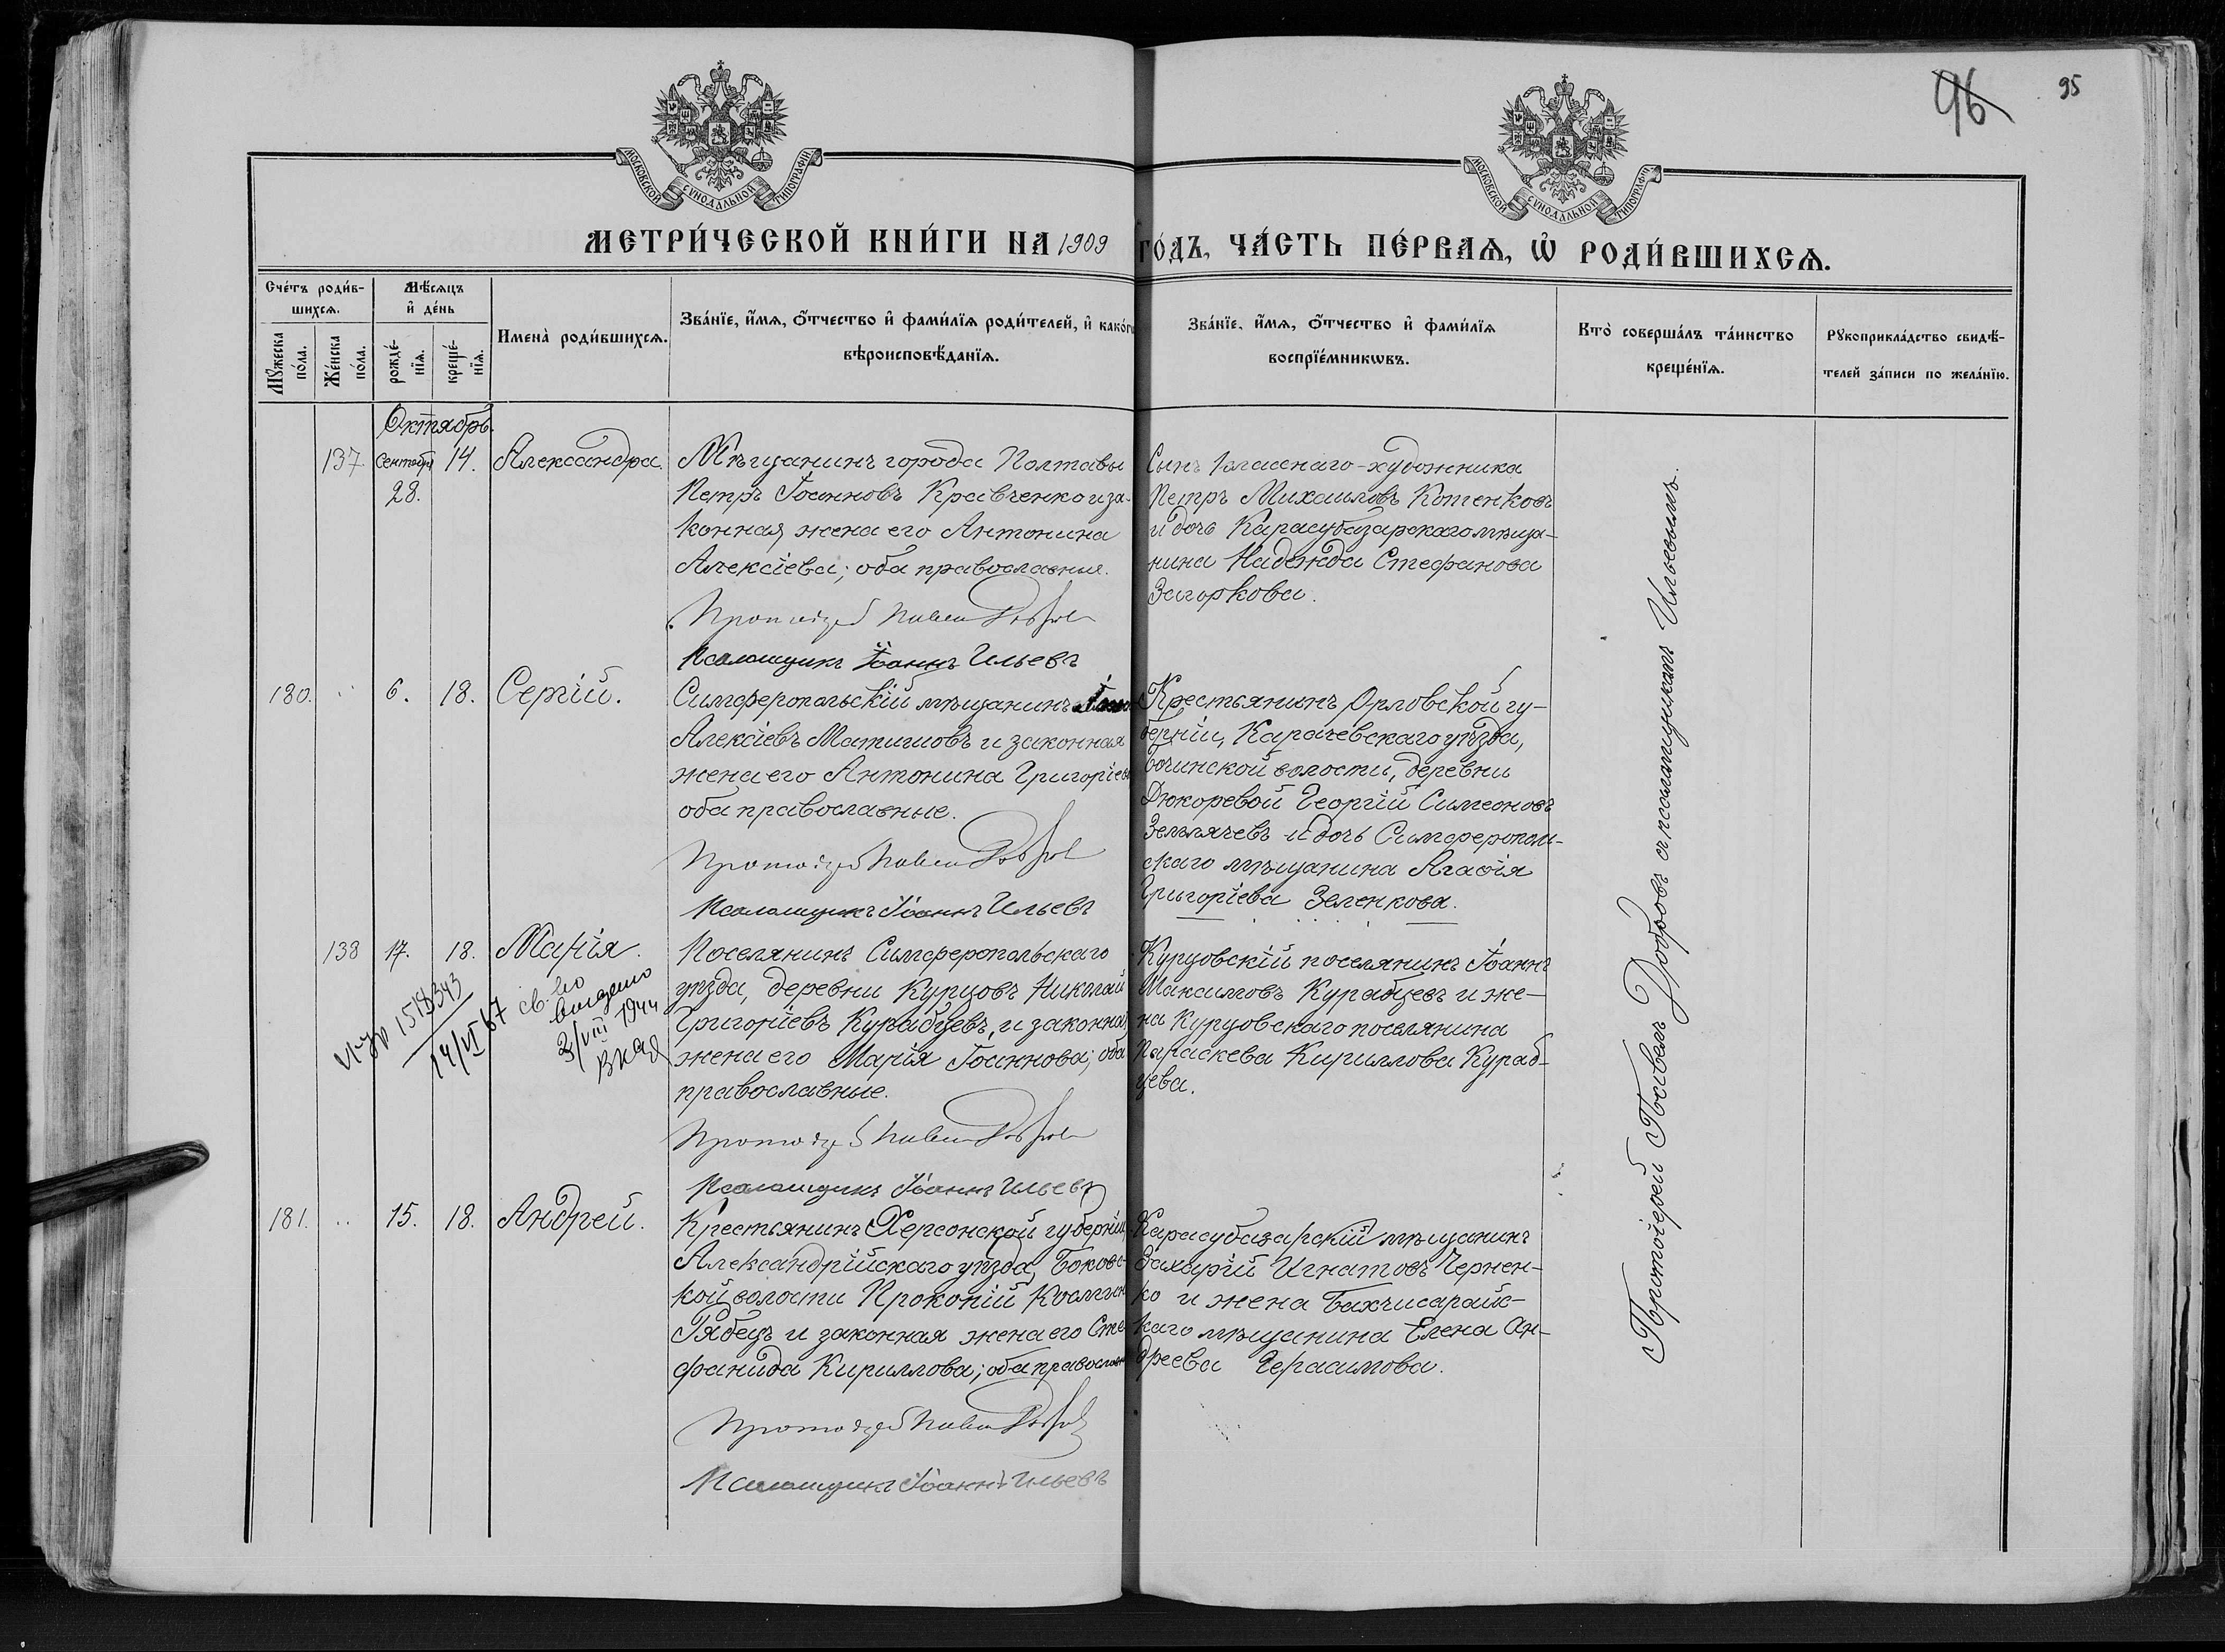 96
95
МОСКОВСКОЙ СѴНОДАЛЬНОЙ ТИПОГРАФІИ
МОСКОВСКОЙ СѴНОДАЛЬНОЙ ТИПОГРАФІИ
МЕТРИ́ЧЕСКОЙ КНИ́ГИ НА 1909 ГО́ДЪ, ЧА́СТЬ ПЕ́РВАѦ, Ѡ҆ РОДИ́ВШИХСѦ.
Сче́тъ роди́в-
шихсѧ.
Мꙋ́жеска по́ла.
Же́нска по́ла.
Мѣ́сѧцъ
и҆ де́нь
рожде́-
нїѧ.
креще́-
нїѧ.
Имена̀ роди́вшихсѧ.
Зва́нїе, и҆́мѧ, ѻ҆́тчество и҆ фами́лїѧ роди́телей, и҆ како́гѡ
вѣроисповѣ́данїѧ.
Зва́нїе, и҆́мѧ, ѻ҆́тчество и҆ фами́лїѧ
воспрїе́мникѡвъ.
Кто̀ соверша́лъ та́инство
креще́нїѧ.
Рꙋкоприкла́дство свидѣ́-
телей за́писи по жела́нїю.
Октябрь.
137. Сентября 28. 14. Александра.
Мѣщанинъ города Полтавы
Петръ Іоанновъ Кравченко и за-
конная жена его Антонина
Алексіева; оба православные.
Протоіерей Павелъ Добровъ
Псаломщикъ Іоаннъ Ильевъ
Сынъ классного-художника
Петръ Михаиловъ Котенковъ
и дочь Карасубазарскаго мѣща-
нина Надежда Стефанова
Загоркова.
180. " 6. 18. Сергій.
Симферопольскій мѣщанинъ
Алексіевъ Матишовъ и законная
жена его Антонина Григоріева
оба православные.
Протоіерей Павелъ Добровъ
Псаломщикъ Іоаннъ Ильевъ
Крестьянинъ Орловской гу-
берніи, Карачевскаго уѣзда,
волости, деревни
Дюкоревой Георгій Симеоновъ
Землячевъ и дочь Симферополь-
скаго мѣщанина Агаѳія
Григоріева Зеленкова.
138 17. 18. Марія.
II-УР 1518343
14/VI 67
св-во
выдано
3/VIII 1944
Поселянинъ Симферопольскаго
уѣзда, деревни Курцовъ Николай
Григоріевъ Курабцевъ, и законная
жена его Марія Іоаннова; оба
православные.
Протоіерей Павелъ Добровъ
Псаломщикъ Іоаннъ Ильевъ
Курцовскій поселянинъ Іоаннъ
Максимовъ Курабцевъ и же-
на Курцовскаго поселянина
Параскева Кириллова Кураб-
цева.
181. " 15. 18. Андрей.
Крестьянинъ Херсонской губерніи,
Александрійскаго уѣзда, Боковс-
кой волости Прокопій Космин
Рябецъ и законная жена его Сте-
фанида Кириллова; оба православн
Протоіерей Павелъ Добровъ
Псаломщикъ Іоаннъ Ильевъ
Карасубазарскій мѣщанинъ
Захарій Игнатовъ Чернен-
ко и жена Бахчисарайс-
каго мѣщанина Елена Ан-
дреева Герасимова.
Протоіерей Павелъ Добровъ съ псаломщикомъ Ильевымъ.